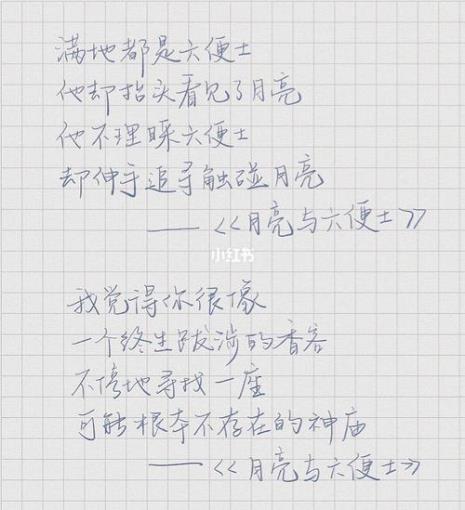 满地都是六便士
他却抬头看见了月亮
他不理睬六便士
却伸手追寻触碰月亮
——《月亮与六便士》
小红书
我觉得你很像
一个终生跋涉的香客
不停地寻找一座
可能根本不存在的神庙
——《月亮与六便士》